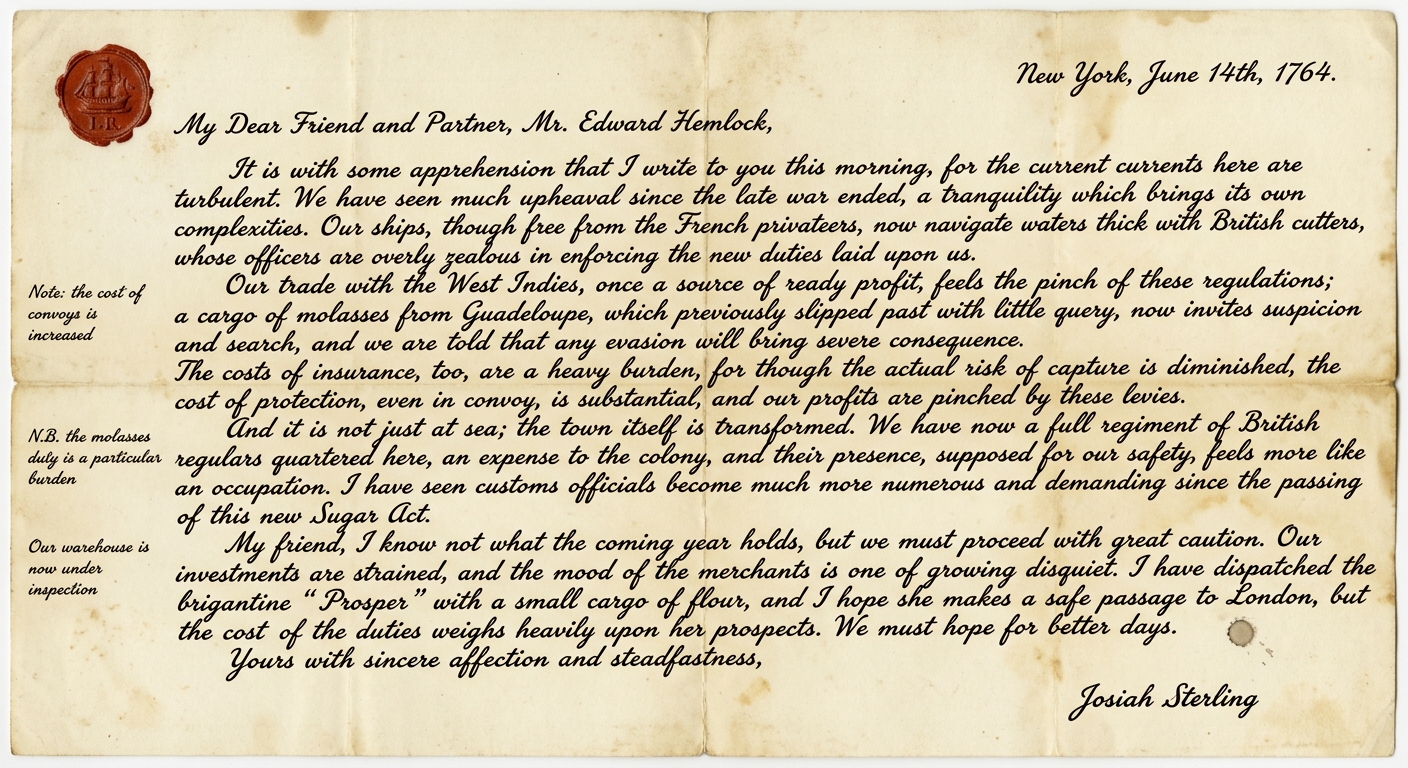 I.R.
New York, June 14th, 1764.
My Dear Friend and Partner, Mr. Edward Hemlock,
It is with some apprehension that I write to you this morning, for the current currents here are
turbulent. We have seen much upheaval since the late war ended, a tranquility which brings its own
complexities. Our ships, though free from the French privateers, now navigate waters thick with British cutters,
whose officers are overly zealous in enforcing the new duties laid upon us.
Our trade with the West Indies, once a source of ready profit, feels the pinch of these regulations;
a cargo of molasses from Guadeloupe, which previously slipped past with little query, now invites suspicion
and search, and we are told that any evasion will bring severe consequence.
The costs of insurance, too, are a heavy burden, for though the actual risk of capture is diminished, the
cost of protection, even in convoy, is substantial, and our profits are pinched by these levies.
And it is not just at sea; the town itself is transformed. We have now a full regiment of British
regulars quartered here, an expense to the colony, and their presence, supposed for our safety, feels more like
an occupation. I have seen customs officials become much more numerous and demanding since the passing
of this new Sugar Act.
My friend, I know not what the coming year holds, but we must proceed with great caution. Our
investments are strained, and the mood of the merchants is one of growing disquiet. I have dispatched the
brigantine “Prosper” with a small cargo of flour, and I hope she makes a safe passage to London, but
the cost of the duties weighs heavily upon her prospects. We must hope for better days.
Yours with sincere affection and steadfastness,
Josiah Sterling
Note: the cost of
convoys is
increased
N.B. the molasses
duly is a particular
burden
Our warehouse is
now under
inspection